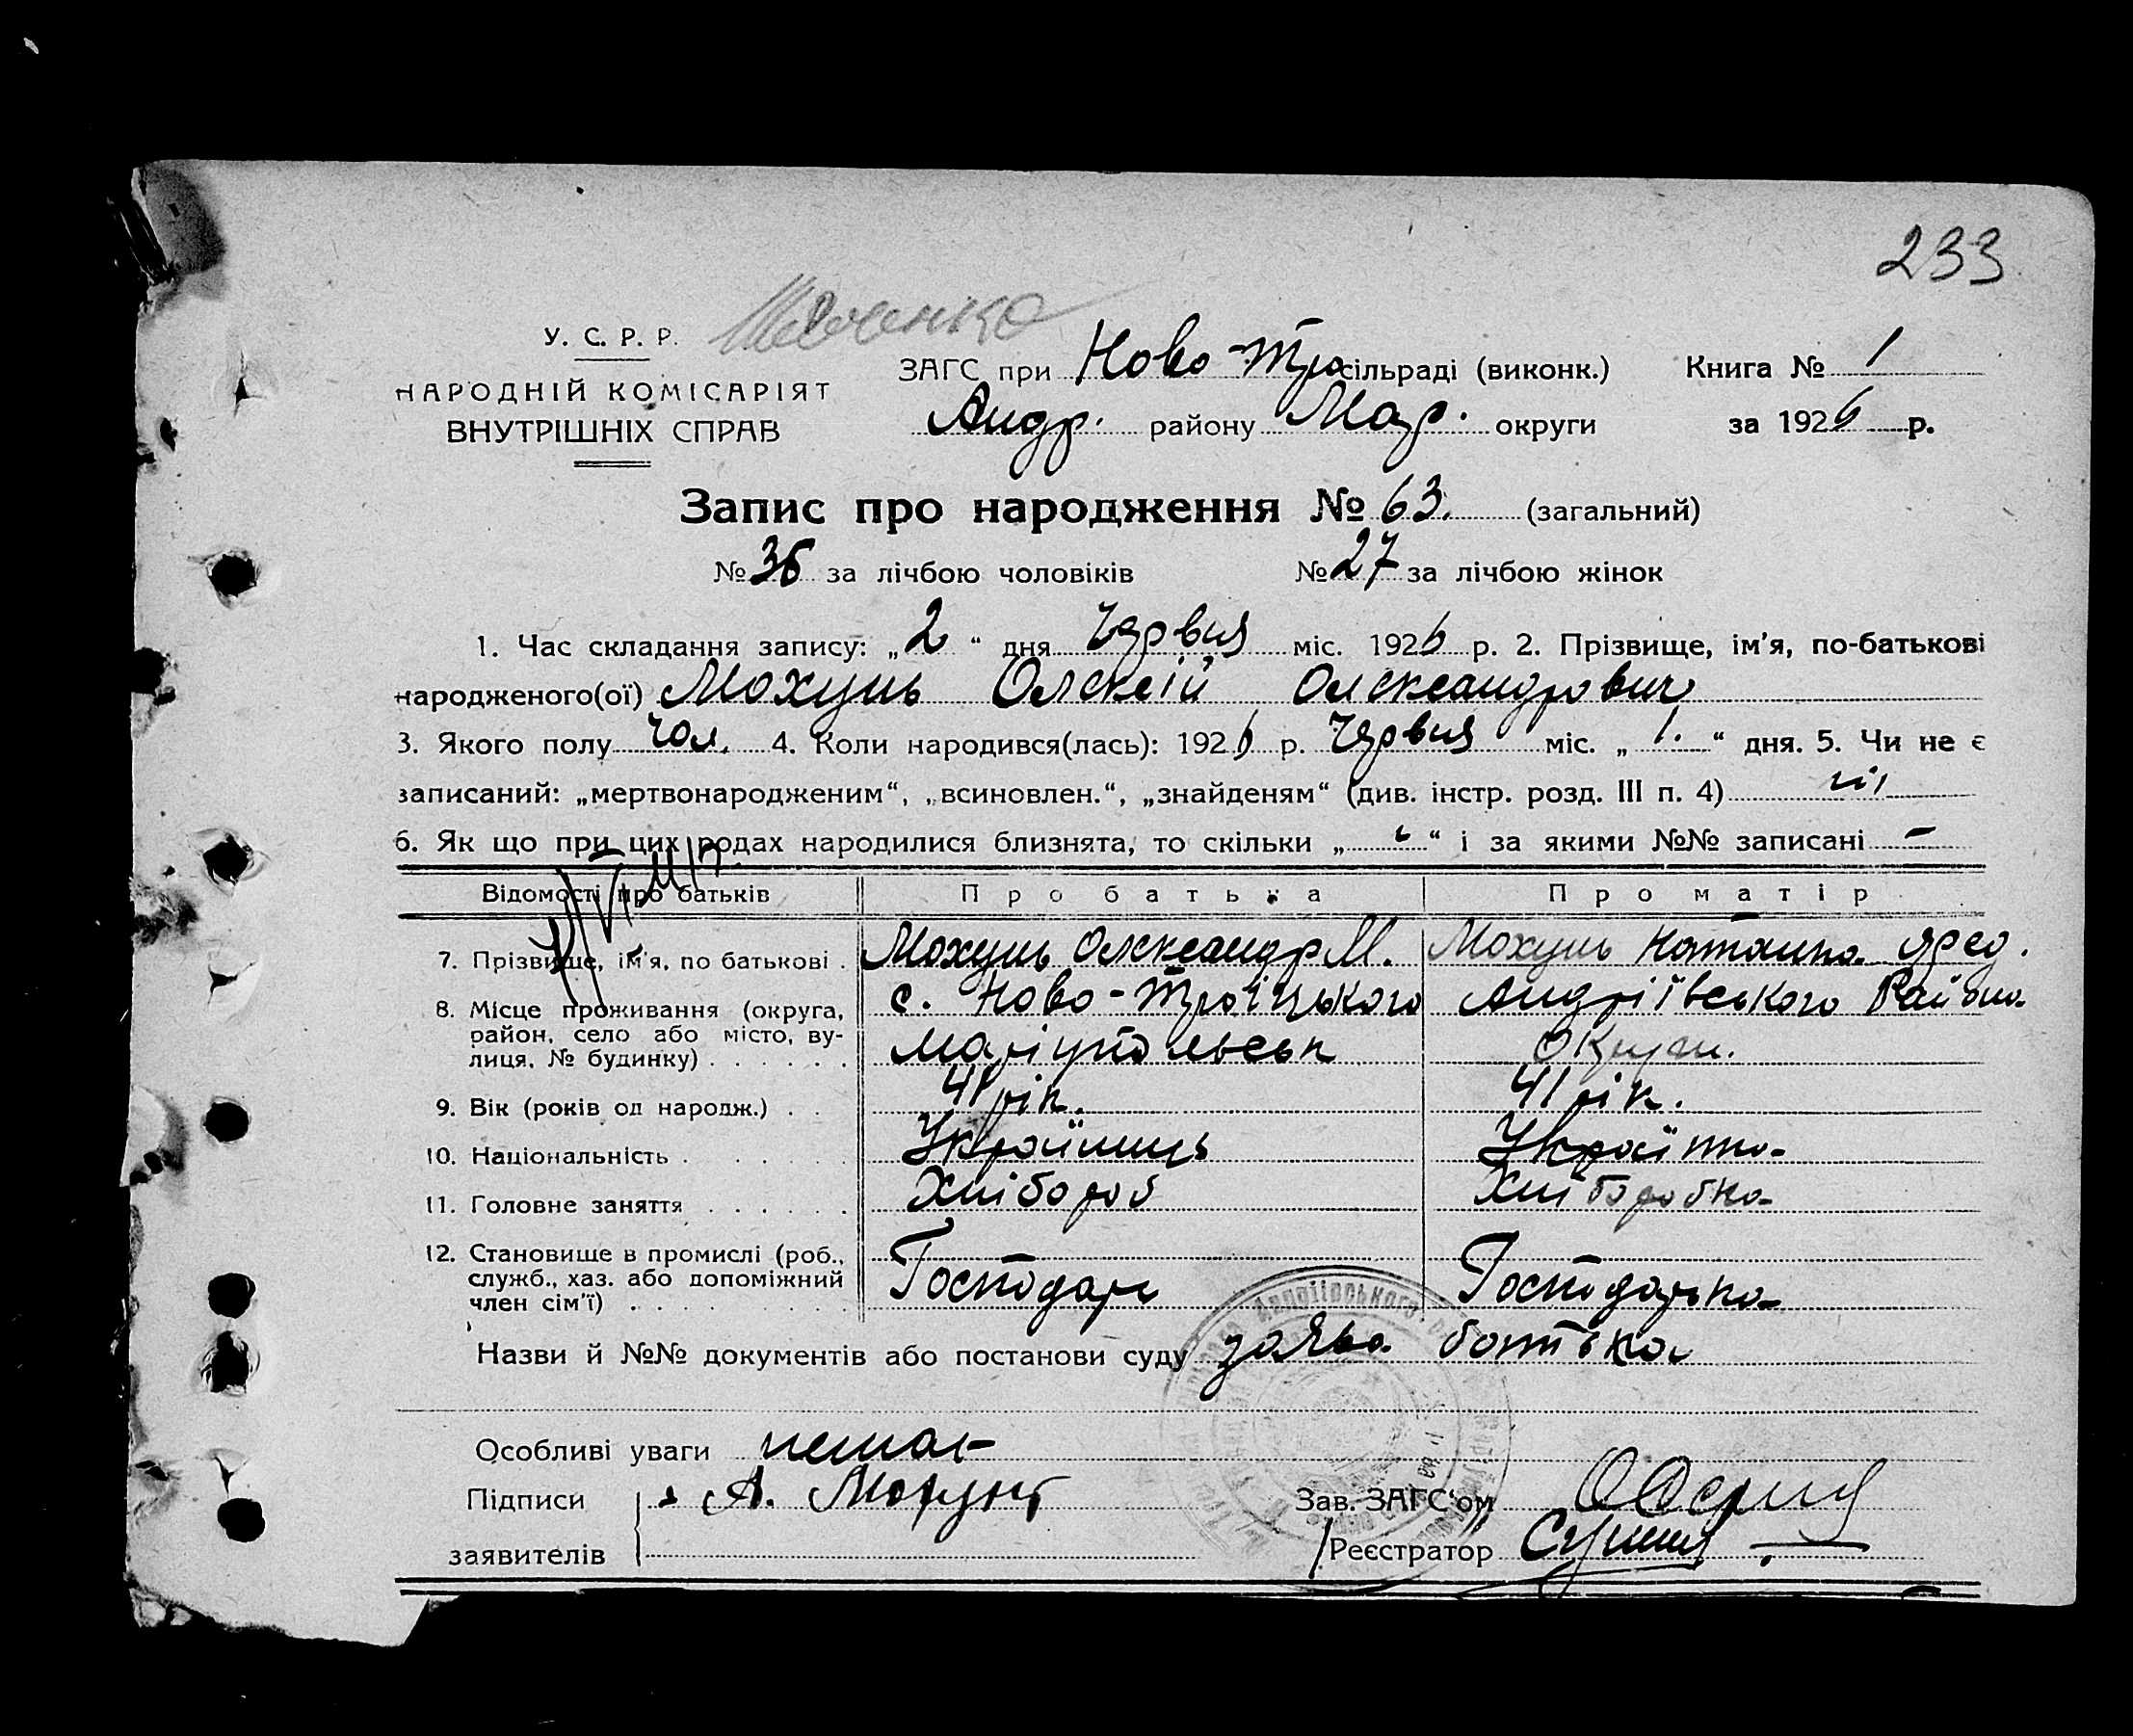 233
У. С. Р. Р.
НАРОДНІЙ КОМІСАРІЯТ
ВНУТРІШНІХ СПРАВ
ЗАГС при Ново-Тро сільраді (виконк.) Книга № 1
Андр. району Мар. округи за 1926 р.
Запис про народження № 63. (загальний)
№ 36 за лічбою чоловіків № 27 за лічбою жінок
1. Час складання запису: „ 2 “ дня Червня міс. 1926 р. 2. Прізвище, ім'я, по-батькові
народженого(ої) Мохунь Олексій Олександрович
3. Якого полу чол. 4. Коли народився(лась): 1926 р. Червня міс. „ 1. “ дня. 5. Чи не є
записаний: „мертвонародженим“, „всиновлен.“, „знайденям“ (див. інстр. розд. III п. 4) ні
6. Як що при цих родах народилися близнята, то скільки „ “ і за якими №№ записані –
Відомості про батьків Про батька Про матір
7. Прізвище, ім'я, по батькові . Мохунь Олександр М. Мохунь Наталка
8. Місце проживання (округа, с. Ново-Троїцького Андріївського Району
район, село або місто, ву-
лиця, № будинку) . . . . . . Маріупольськ Округи.
9. Вік (років од народж.) . . 41 рік. 41 рік.
10. Національність . . . . . . Українець Українка
11. Головне заняття . . . . . . Хлібороб Хліборобка
12. Становище в промислі (роб.,
служб., хаз. або допоміжний Господар Господарка
член сім'ї) . . . . . . . . .
Назви й №№ документів або постанови суду заява батька
Особливі уваги немає
Підписи А. Мохунь Зав. ЗАГС'ом
заявителів Реєстратор